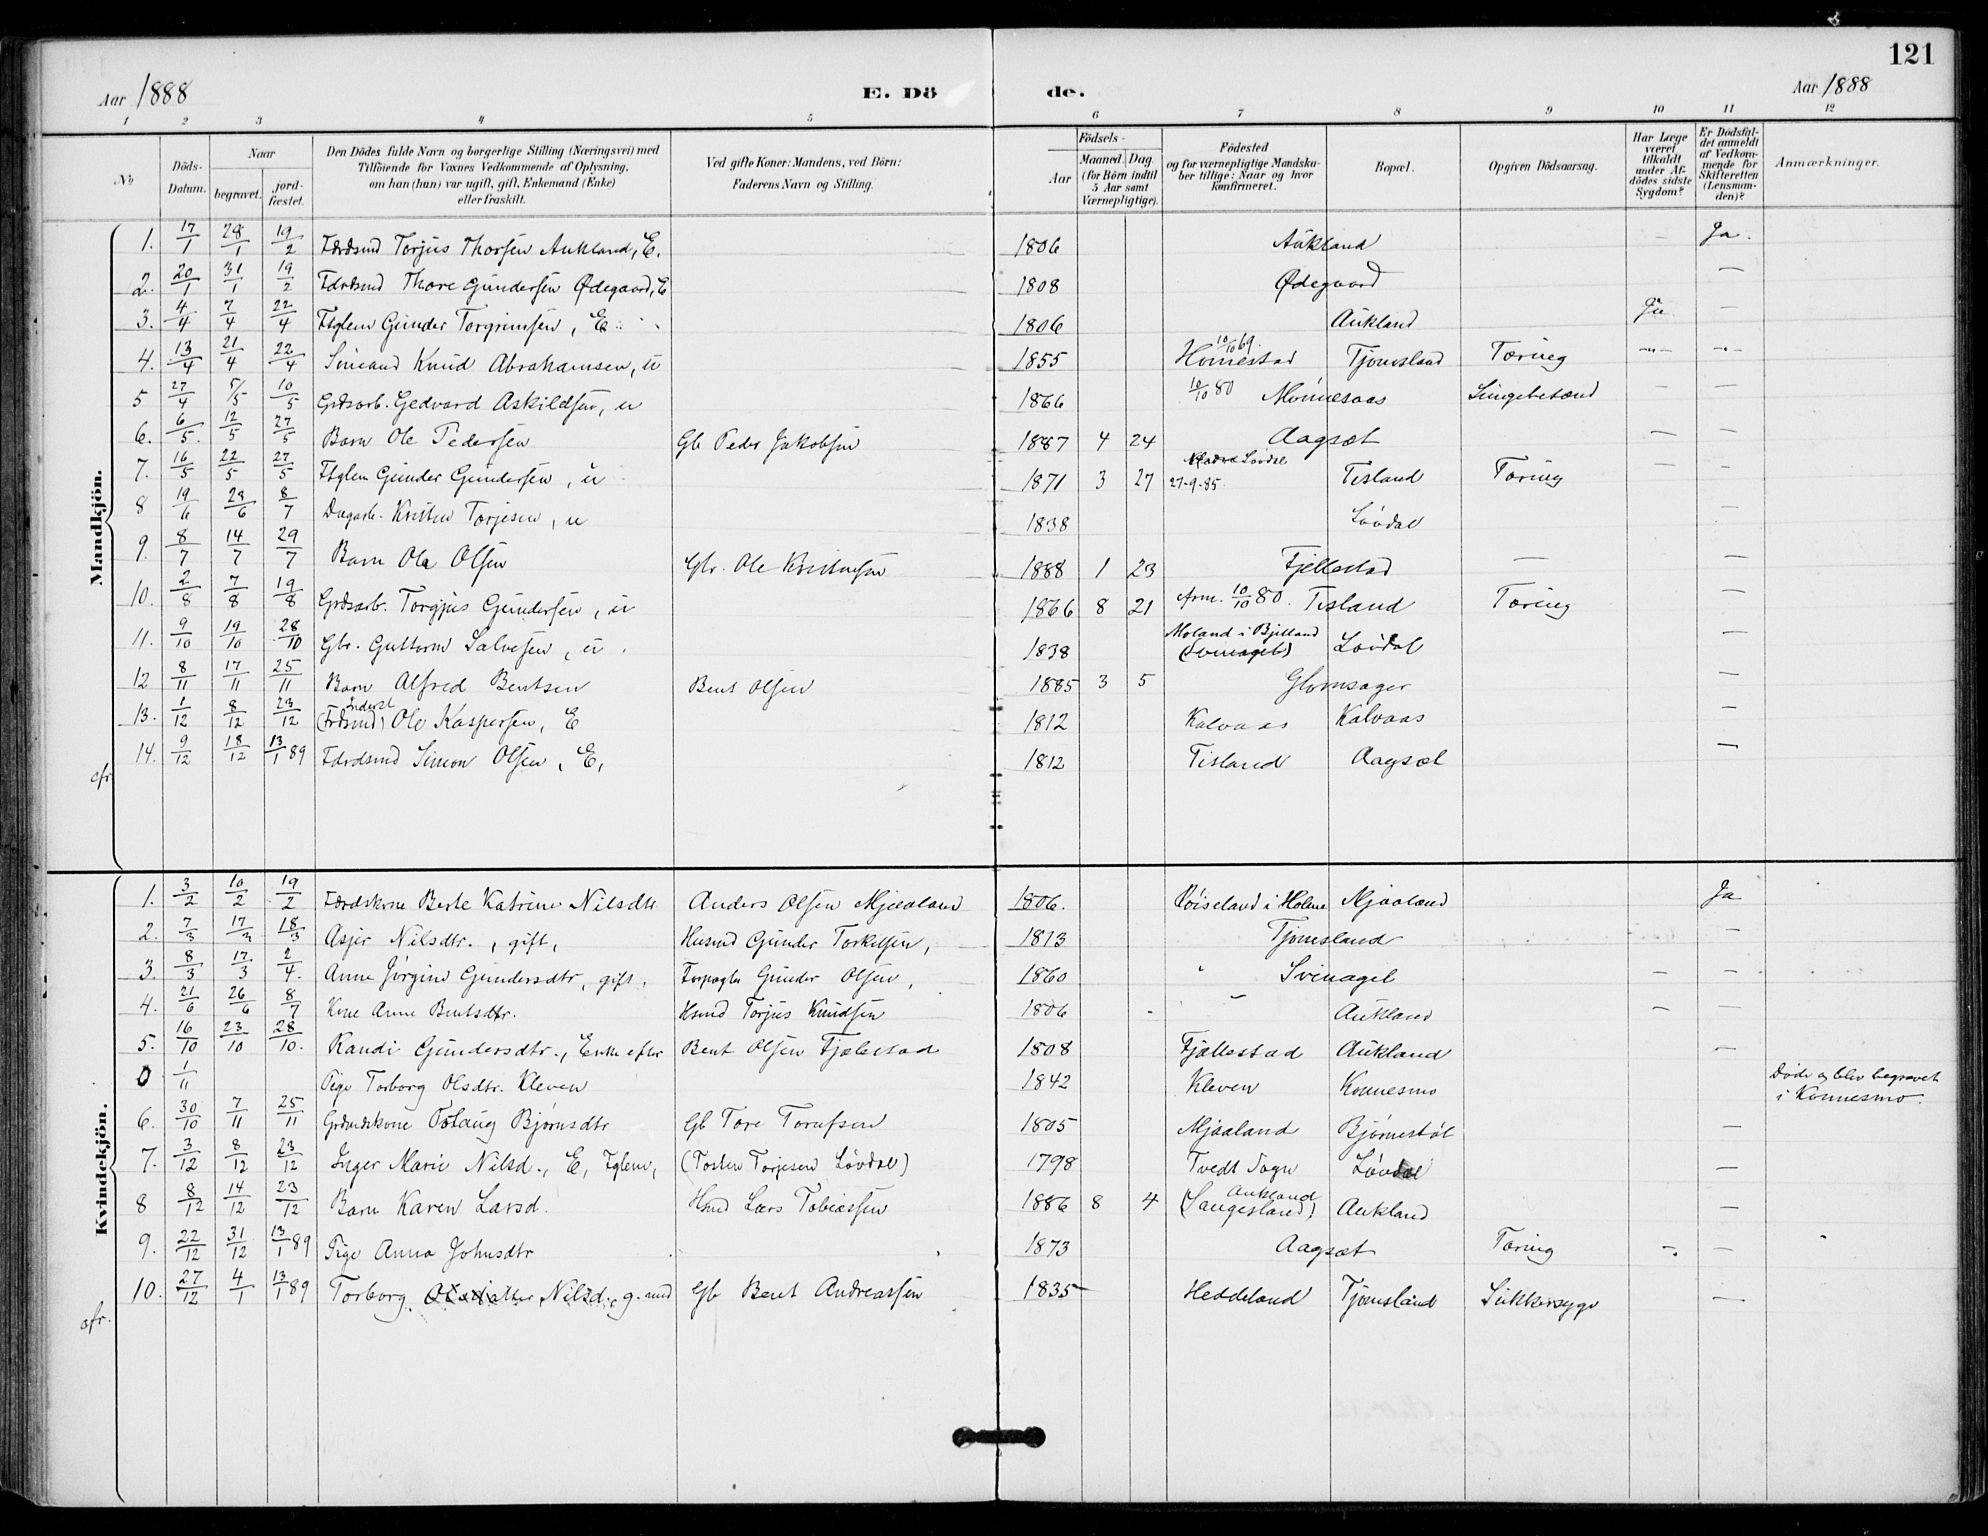 121
Aar 1888 E. Dö de. Aar 1888
1 2 3 4 5 6 7 8 9 10 11 12
No. Döds-Datum. Naar begravet. jordfæstet. Den Dödes fulde Navn og borgerlige Stilling (Næringsvei) med Tilföiende for Voxnes Vedkommende af Oplysning, om han (hun) var ugift, gift, Enkemand (Enke) eller fraskilt. Ved gifte Koner: Mandens, ved Börn: Faderens Navn og Stilling. Födsels- Aar Maaned. Dag. (for Börn indtil 5 Aar samt Værnepligtige). Födested og for værnepligtige Mandskaber tillige: Naar og hvor Konfirmeret. Bopæl. Opgiven Dödsaarsag. Har Læge været tilkaldt under Afdödes sidste Sygdom? Er Dödsfaldet anmeldt af Vedkommende for Skifteretten (Lensmanden)? Anmærkninger.
Mandkjön.
1. 17/1 28/1 19/2 Fdrdsmd Torjus Thorsen Aukland, E. 1806 Aukland Ja.
2. 20/1 31/1 19/2 Fdrdsmd Thore Gundersen Ødegaard, E 1808 Ødegaard —
3. 4/4 7/4 22/4 Ftglem Gunder Torgrimsen, E. 1806 Aukland Ja —
4. 13/4 21/4 22/4 Knud Abrahamsen, u 1855 10/10 69. Homestad Tjomsland Tæring — —
5 27/4 5/5 10/5 Grdsarb. Gedvard Askildsen, u 1866 10/10 80 Monnesaas Lungebetænd — —
6. 6/5. 12/5 27/5 Barn Ole Pedersen Gb Peder Jakobsen 1887 4 24 Aagsæt — —
7. 16/5 22/5 27/5 Ftglem Gunder Gundersen, u 1871 3 27 Løvdal 27-9-85. Tisland Tæring — —
8 19/6 28/6 8/7 Dagarb. Kristen Torjesen, u 1838 Løvdal —
9. 8/7 14/7 29/7 Barn Ole Olsen Gbr. Ole Kristensen 1888 1 23 Fjellestad — —
10. 2/8 7/8 19/8 Grdsarb. Torgjus Gundersen, u 1866 8 21 10/10 80. Tisland Tæring —
11. 9/10 19/10 28/10 Gbr. Guttorm Salvesen, u. 1838 Moland i Bjelland (Svinagel) Løvdal —
12 8/11 17/11 25/11 Barn Alfred Bentsen Bent Olsen 1885 3 5 Glomsager —
13. 1/12 8/12 23/12 (Frdsmd) Inderst Ole Kaspersen, E 1812 Kalvaas Kalvaas —
14. 9/12 18/12 13/1 89 Fdrdsmd Simon Olsen, E, 1812 Tisland Aagsæt —
afr.
Kvindekjön.
1. 3/2 10/2 19/2 Fdrdskone Berte Katrine Nilsdtr Anders Olsen Mjaaland 1806. Røiseland i Holme Mjaaland Ja
2. 7/3 17/3 18/3 Asjer Nilsdtr., gift, Husmd Gunder Torkelsen, 1813 Tjomsland —
3. 8/3 17/3 2/4. Anne Jørgine Gundersdtr, gift, Forpagter Gunder Olsen, 1860 Svinagel — —
4. 21/6 26/6 8/7 Kone Anne Bentsdtr. Hsmd Torjus Knudsen 1806 Aukland —
5. 16/10 23/10 28/10. Randi Gundersdtr., Enke efter Bent Olsen Fjelestad 1808 Fjellestad Aukland —
0 1/11 Pige Torborg Olsdtr. Kleven 1842 Kleven Konnesmo Døde og blev begravet i Konnesmo.
6. 30/10 7/11 25/11 Grdmdskone Bjørnsdtr Gb Tore Torufsen 1805 Mjaaland Bjørnestøl —
7. 3/12 8/12 23/12 Inger Marie Nilsd., E, Fglem, (Tosten Torjesen Løvdal) 1798 Tvedt Sogn Løvdal —
8 8/12 14/12 23/12 Barn Karen Larsd. Hsmd Lars Tobiassen 1886 8 4 Aukland (Saugesland) Aukland —
9. 22/12 31/12 13/1 89 Pige Anna Johnsdtr 1873 Aagsæt Tæring — —
10. 27/12 4/1 13/1 89 Torborg Nilsd. g. med Gb Bent Andreassen 1835 Heddeland Tjomsland Sukkersyge —
afr.